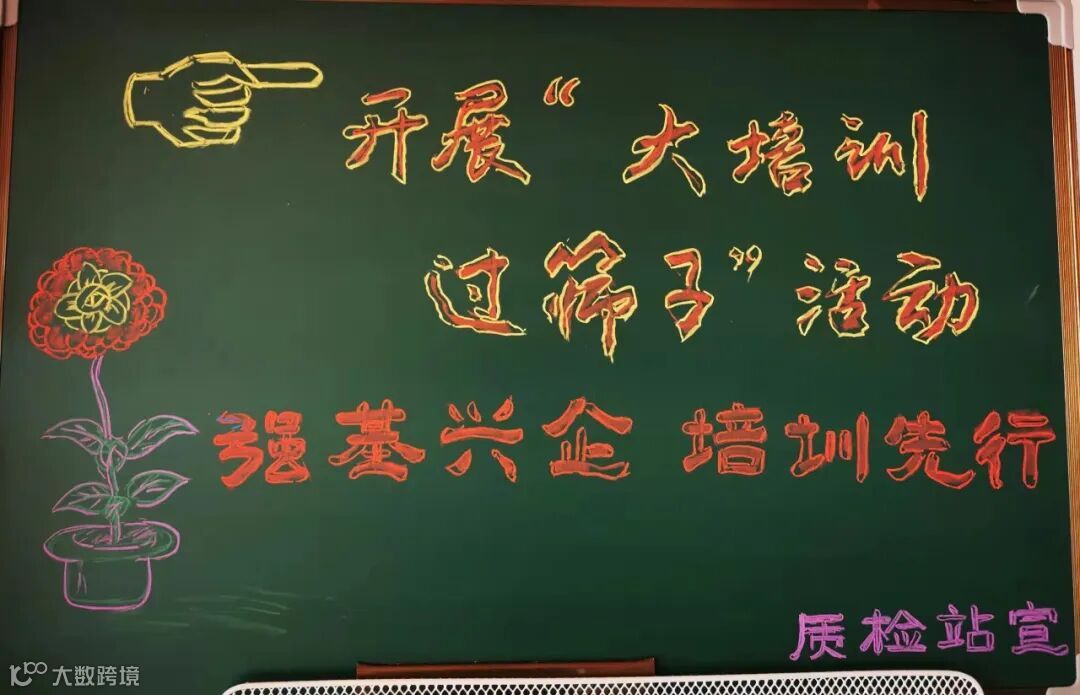 开展“大培训
过筛子”活动
强基兴企 培训先行
质检站宣
大数跨境